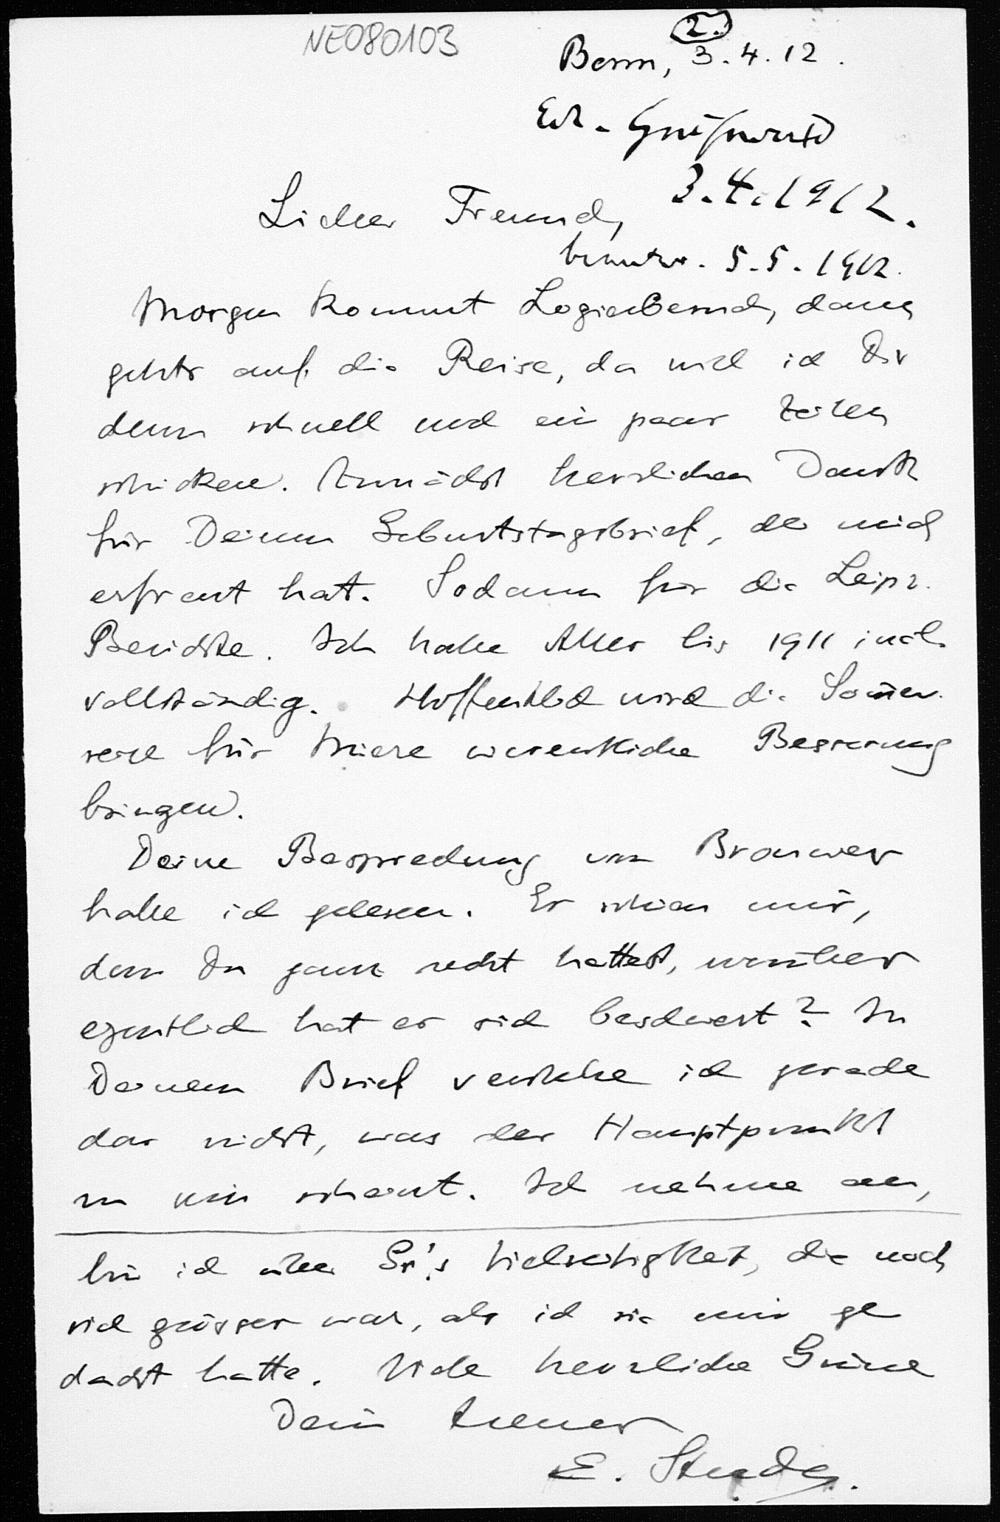 NE080103
2.
Bonn, 3.4.12.
Erh. Greifswald
3.4.1912.
Lieber Freund,
beantw. 5.5.1912.
Morgen kommt Logierbesuch, dann
gehts auf die Reise, da will ich Dir
denn schnell noch ein paar Zeilen
schicken. Zunächst herzlichen Dank
für Deinen Geburtstagsbrief, der mich
erfreut hat. Sodann für die Leipz.
Berichte. Ich habe Alles bis 1911 incl.
vollständig. Hoffentlich wird die Sommer
reise für wesentliche Besserung
bringen.
Deine Besprechung von Brouwer
habe ich gelesen. Es schien mir,
dass Du ganz recht hattest, worüber
eigentlich hat er sich beschwert? In
Deinem Brief verstehe ich gerade
das nicht, was der Hauptpunkt
zu sein scheint. Ich nehme an,
bin ich über Gr's Vielseitigkeit, die noch
viel grösser war, als ich sie mir ge
dacht hatte. Viele herzliche Grüsse
Dein treuer
E. Study.